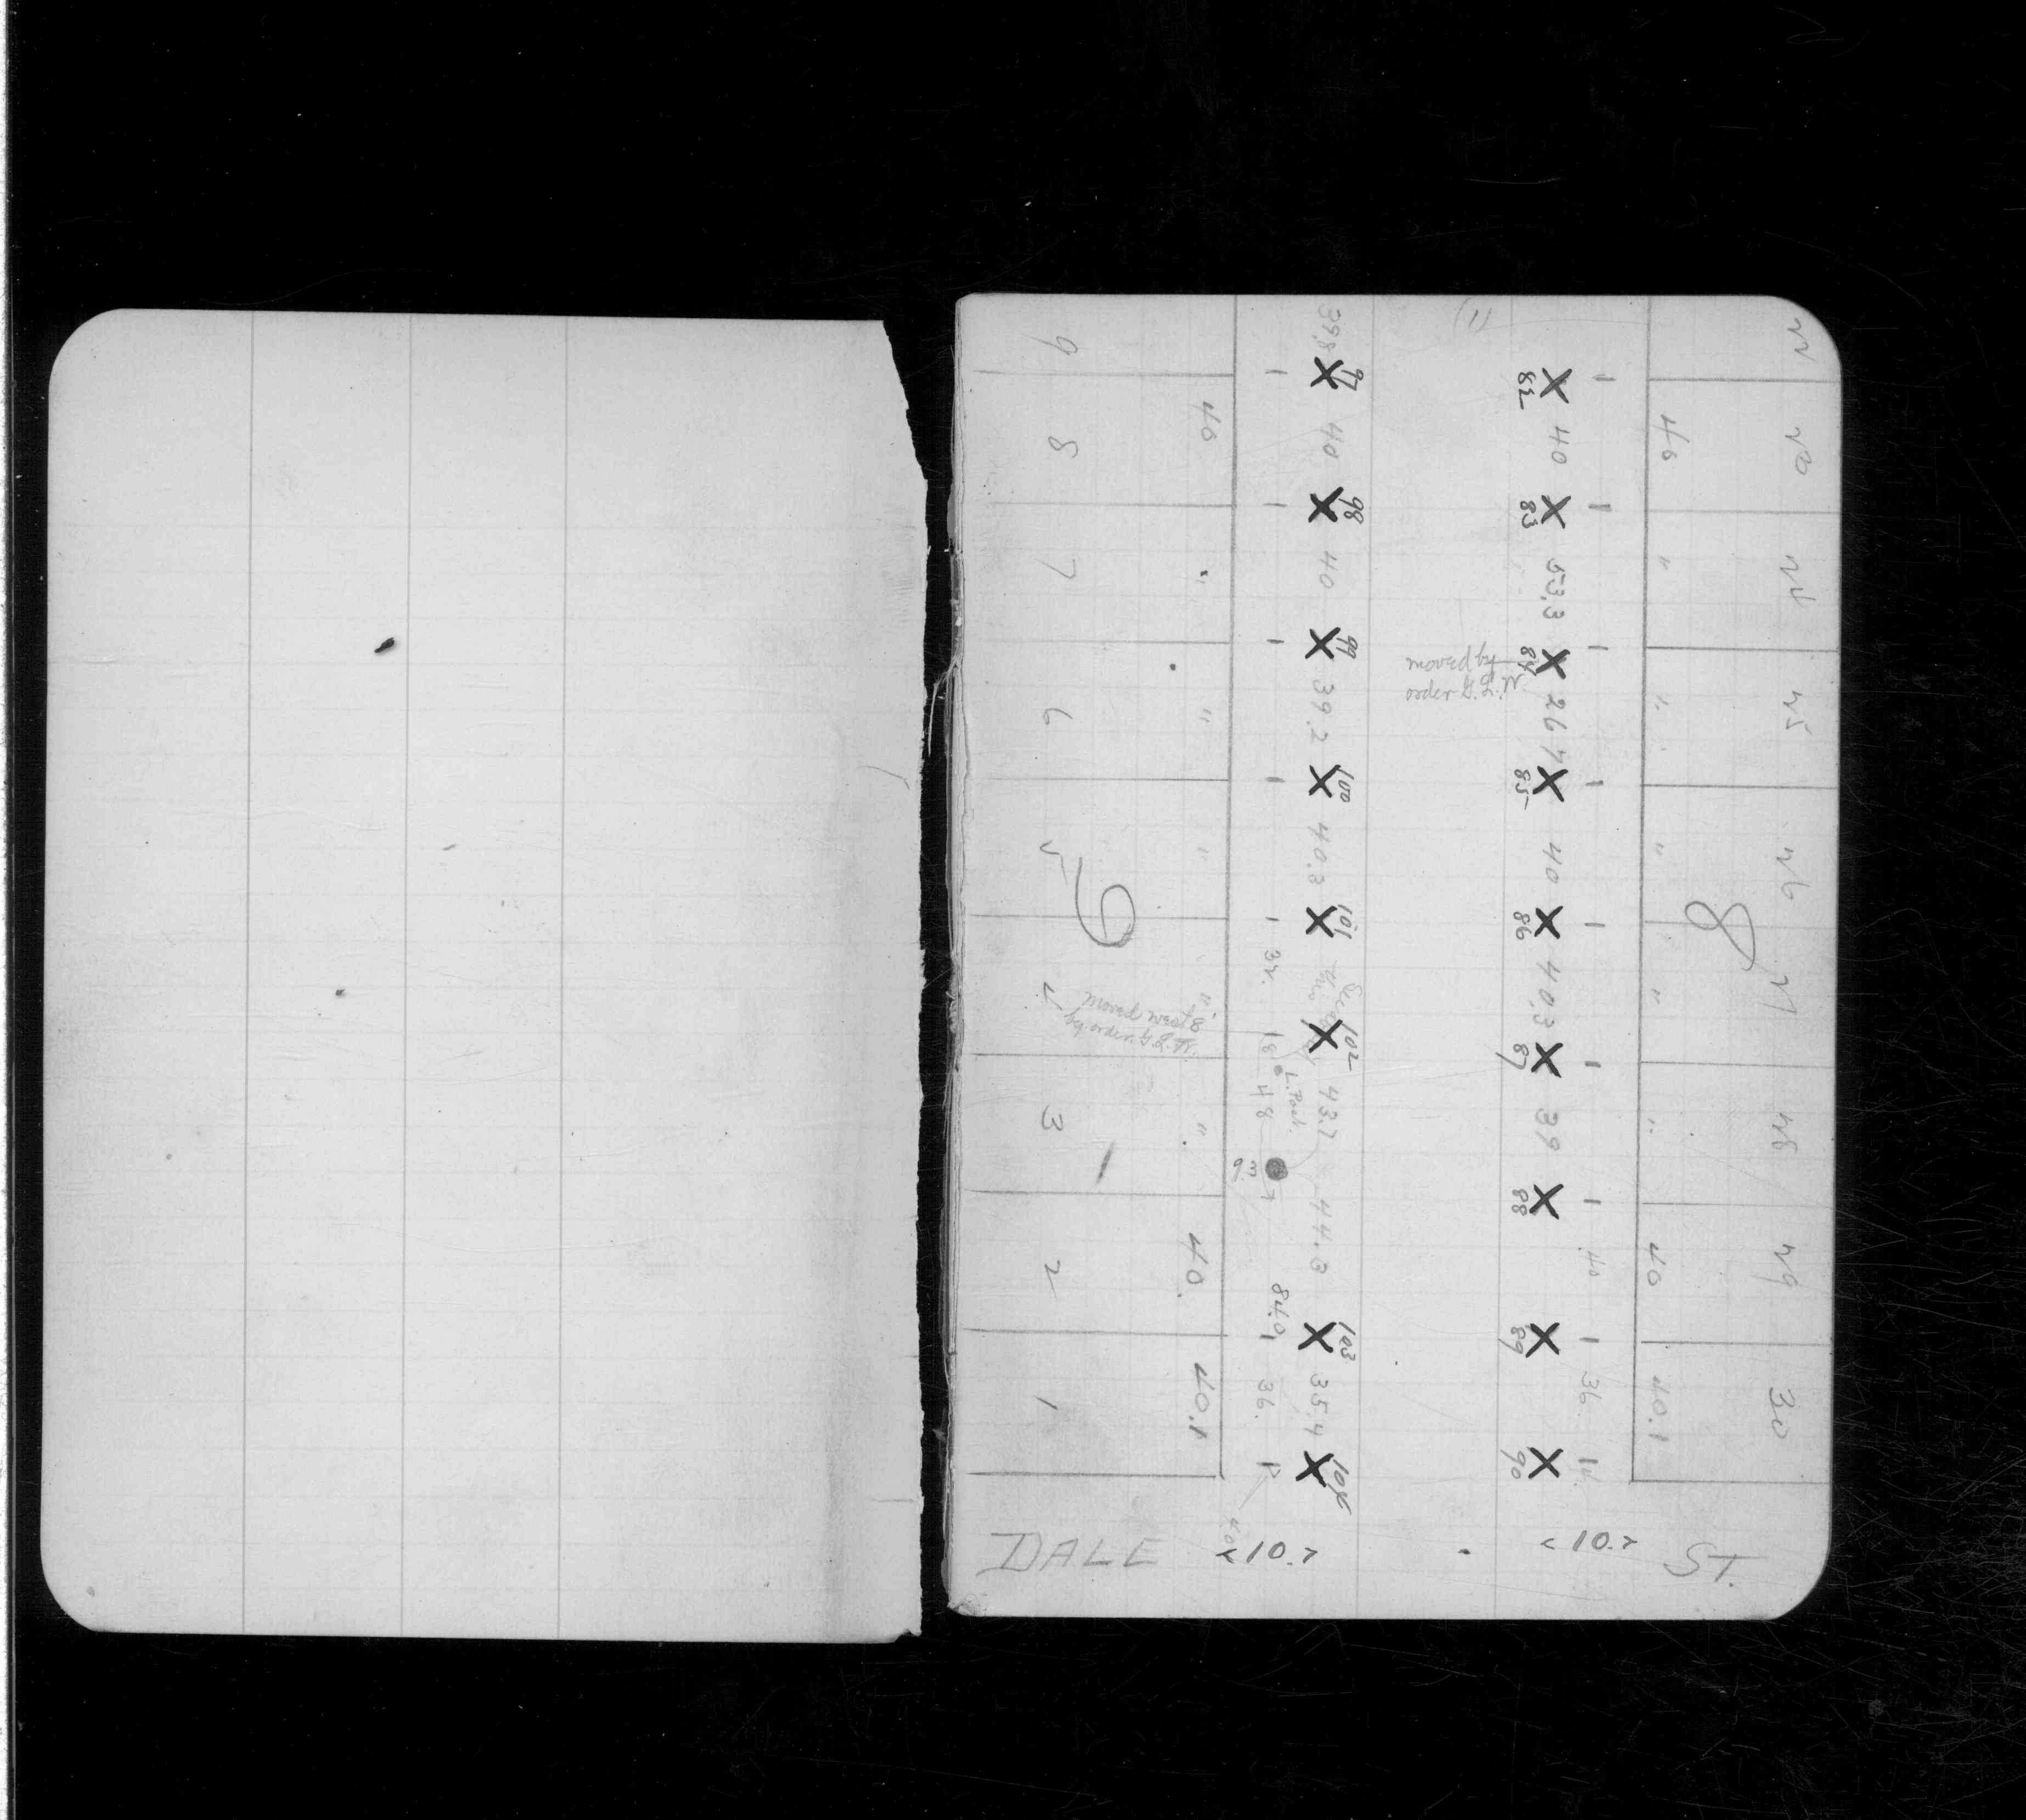 DALE ST.
<10.> <10.>
9 8 7 6 5 4 3 2 1
40 " " " " " " 40. 40.1
8' west moved
by order G.L.W.
9
37. 18 48 84.0 36.
L. Post.
93
39.8 40 40 39.2 40.3 43.7 44.3 35.4
97 98 99 100 101 102 103 104
moved by
order G.L.W.
82 83 84 85 86 87 88 89 90
40 53.3 26.7 40 40.3 39
40 36
40 " " " " " 40 40.1
8
22 23 24 25 26 27 28 29 30